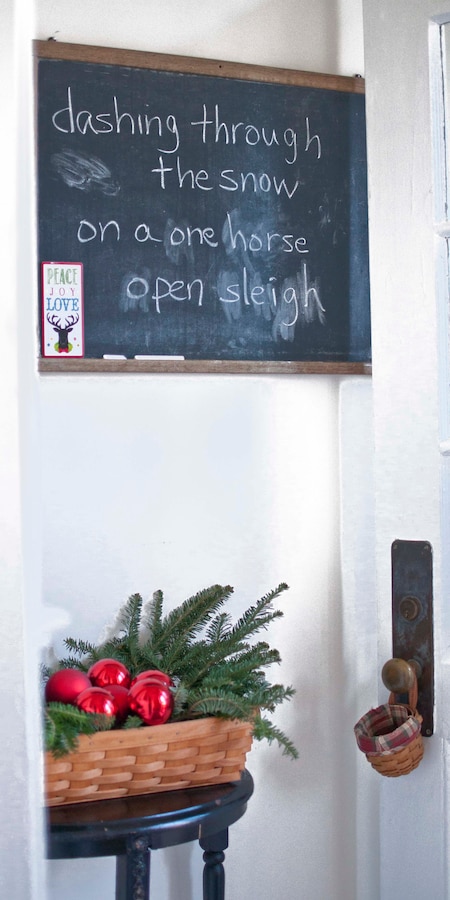 dashing through
the snow
on a one horse
open sleigh
PEACE
JOY
LOVE